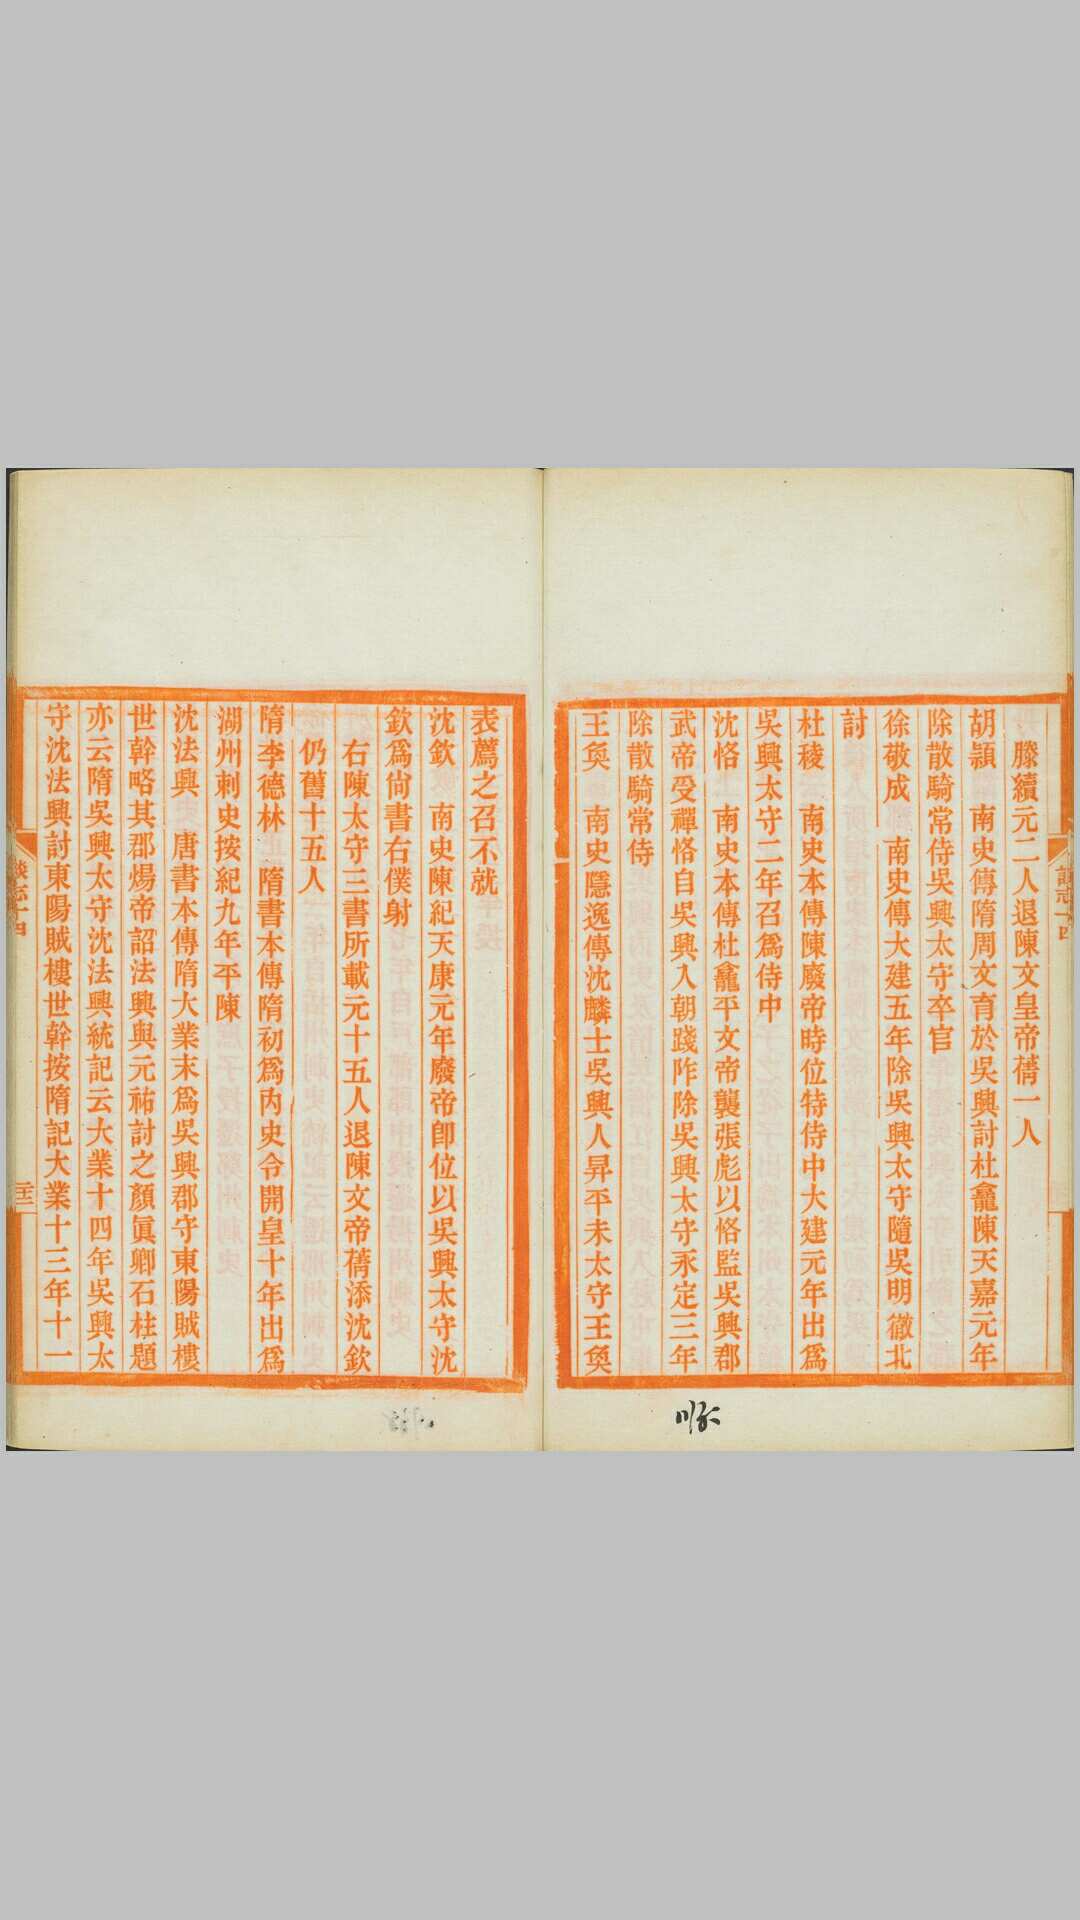 滕續元二人退陳文皇帝蒨一人
胡頴 南史傳隋周文育於吳興討杜龕陳天嘉元年
除散騎常侍吳興太守卒官
徐敬成 南史傳大建五年除吳興太守隨吳明徹北
討
杜稜 南史本傳陳廢帝時位特侍中大建元年出爲
吳興太守二年召爲侍中
沈恪 南史本傳杜龕平文帝襲張彪以恪監吳興郡
武帝受禪恪自吳興入朝踐阼除吳興太守永定三年
除散騎常侍
王奐 南史隱逸傳沈麟士吳興人昇平末太守王奐
表薦之召不就
沈欽 南史陳紀天康元年廢帝卽位以吳興太守沈
欽爲尙書右僕射
右陳太守三書所載元十五人退陳文帝蒨添沈欽
仍舊十五人
隋李德林 隋書本傳隋初爲內史令開皇十年出爲
湖州刺史按紀九年平陳
沈法興 唐書本傳隋大業末爲吳興郡守東陽賊樓
世幹略其郡煬帝詔法興與元祐討之顏眞卿石柱題
亦云隋吳興太守沈法興統記云大業十四年吳興太
守沈法興討東陽賊樓世幹按隋記大業十三年十一
談志十四
談志十四